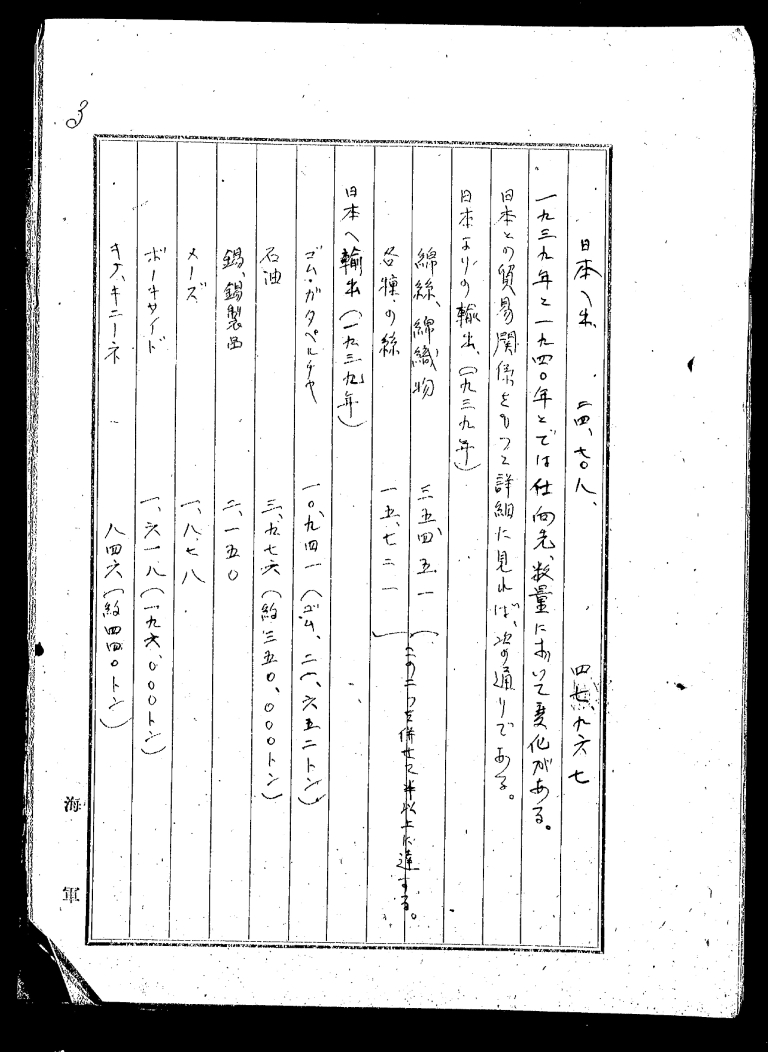 3
日本へ出 二四、七〇八、 四七、九六七
一九三九年と一九四〇年とでは仕向先、数量において変化がある。
日本との貿易関係をもつと詳細に見れば、次の通りである。
日本よりの輸出、(一九三九年)
綿絲、綿織物 三五、四五一
各種の絲 一五、七二一
(この二つを併せて半以上に達する。)
日本へ輸出(一九三九年)
ゴム・ガタペルチヤ 一〇、九四一(ゴム、二一、六五二トン)
石油 三、九七六(約三五〇、〇〇〇トン)
錫、錫製品 二、一五〇
メーズ 一、八七八
ボーキサイド 一、六一八(一九六、〇〇〇トン)
キナ、キニーネ 八四六(約四四〇トン)
海軍